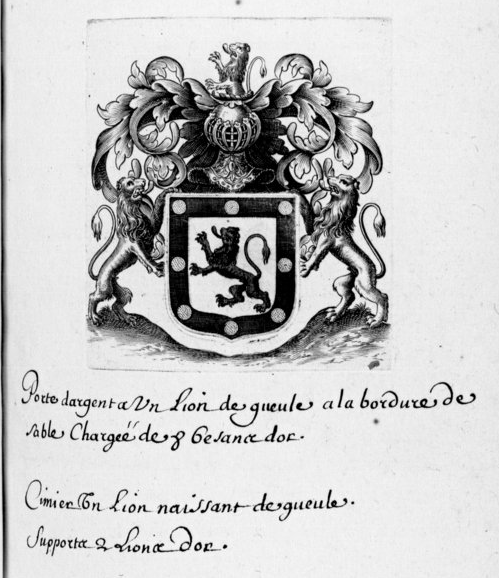 Porte dargent a Vn Lion de gueule a la bordure de
sable Chargeé de 8 besans dor.
Cimier Vn Lion naissant de gueule.
Supports 2 Lions Dor.